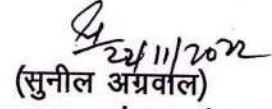 22/11/2022
(सुनील अग्रवाल)